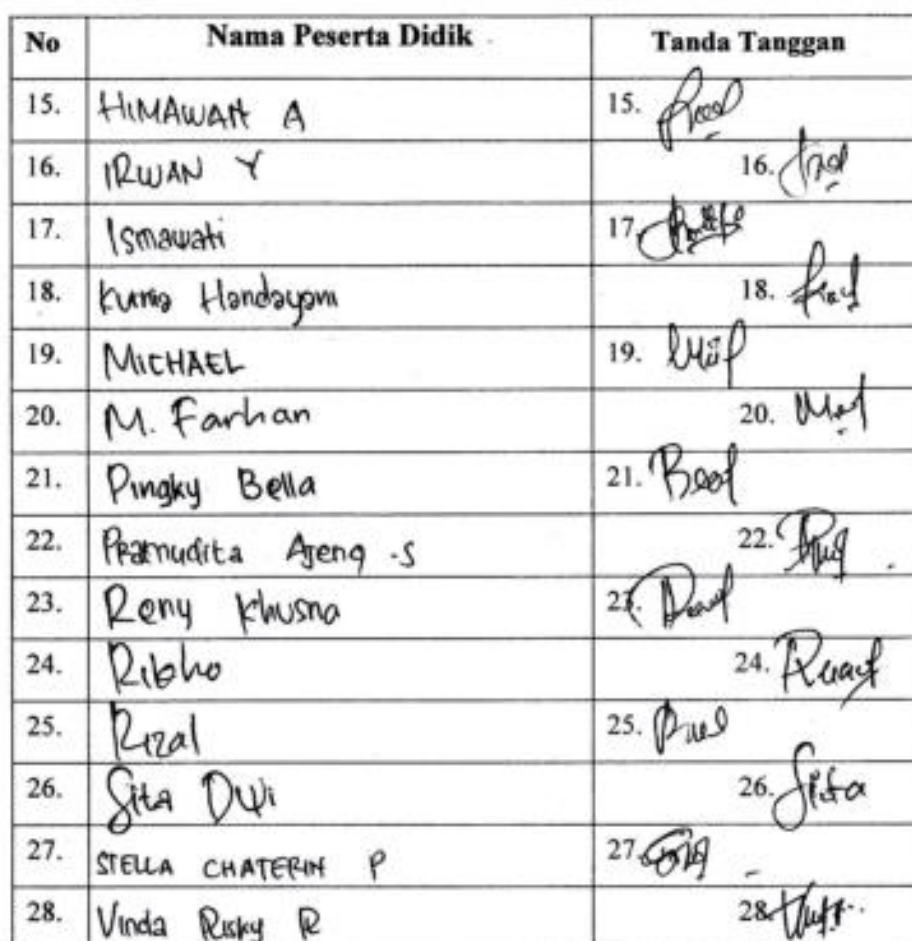 No Nama Peserta Didik Tanda Tanggan
15. HIMAWAN A 15.
16. IRWAN Y 16.
17. Ismawati 17.
18. Kurnia Handayani 18.
19. MICHAEL 19.
20. M. Farhan 20.
21. Pingky Bella 21.
22. Pramudita Ajeng .S 22.
23. Reny Khusna 23.
24. Ribho 24.
25. Rizal 25.
26. Sita Dwi 26. Sita
27. STELLA CHATERIN P 27.
28. Vinda Risky R 28.